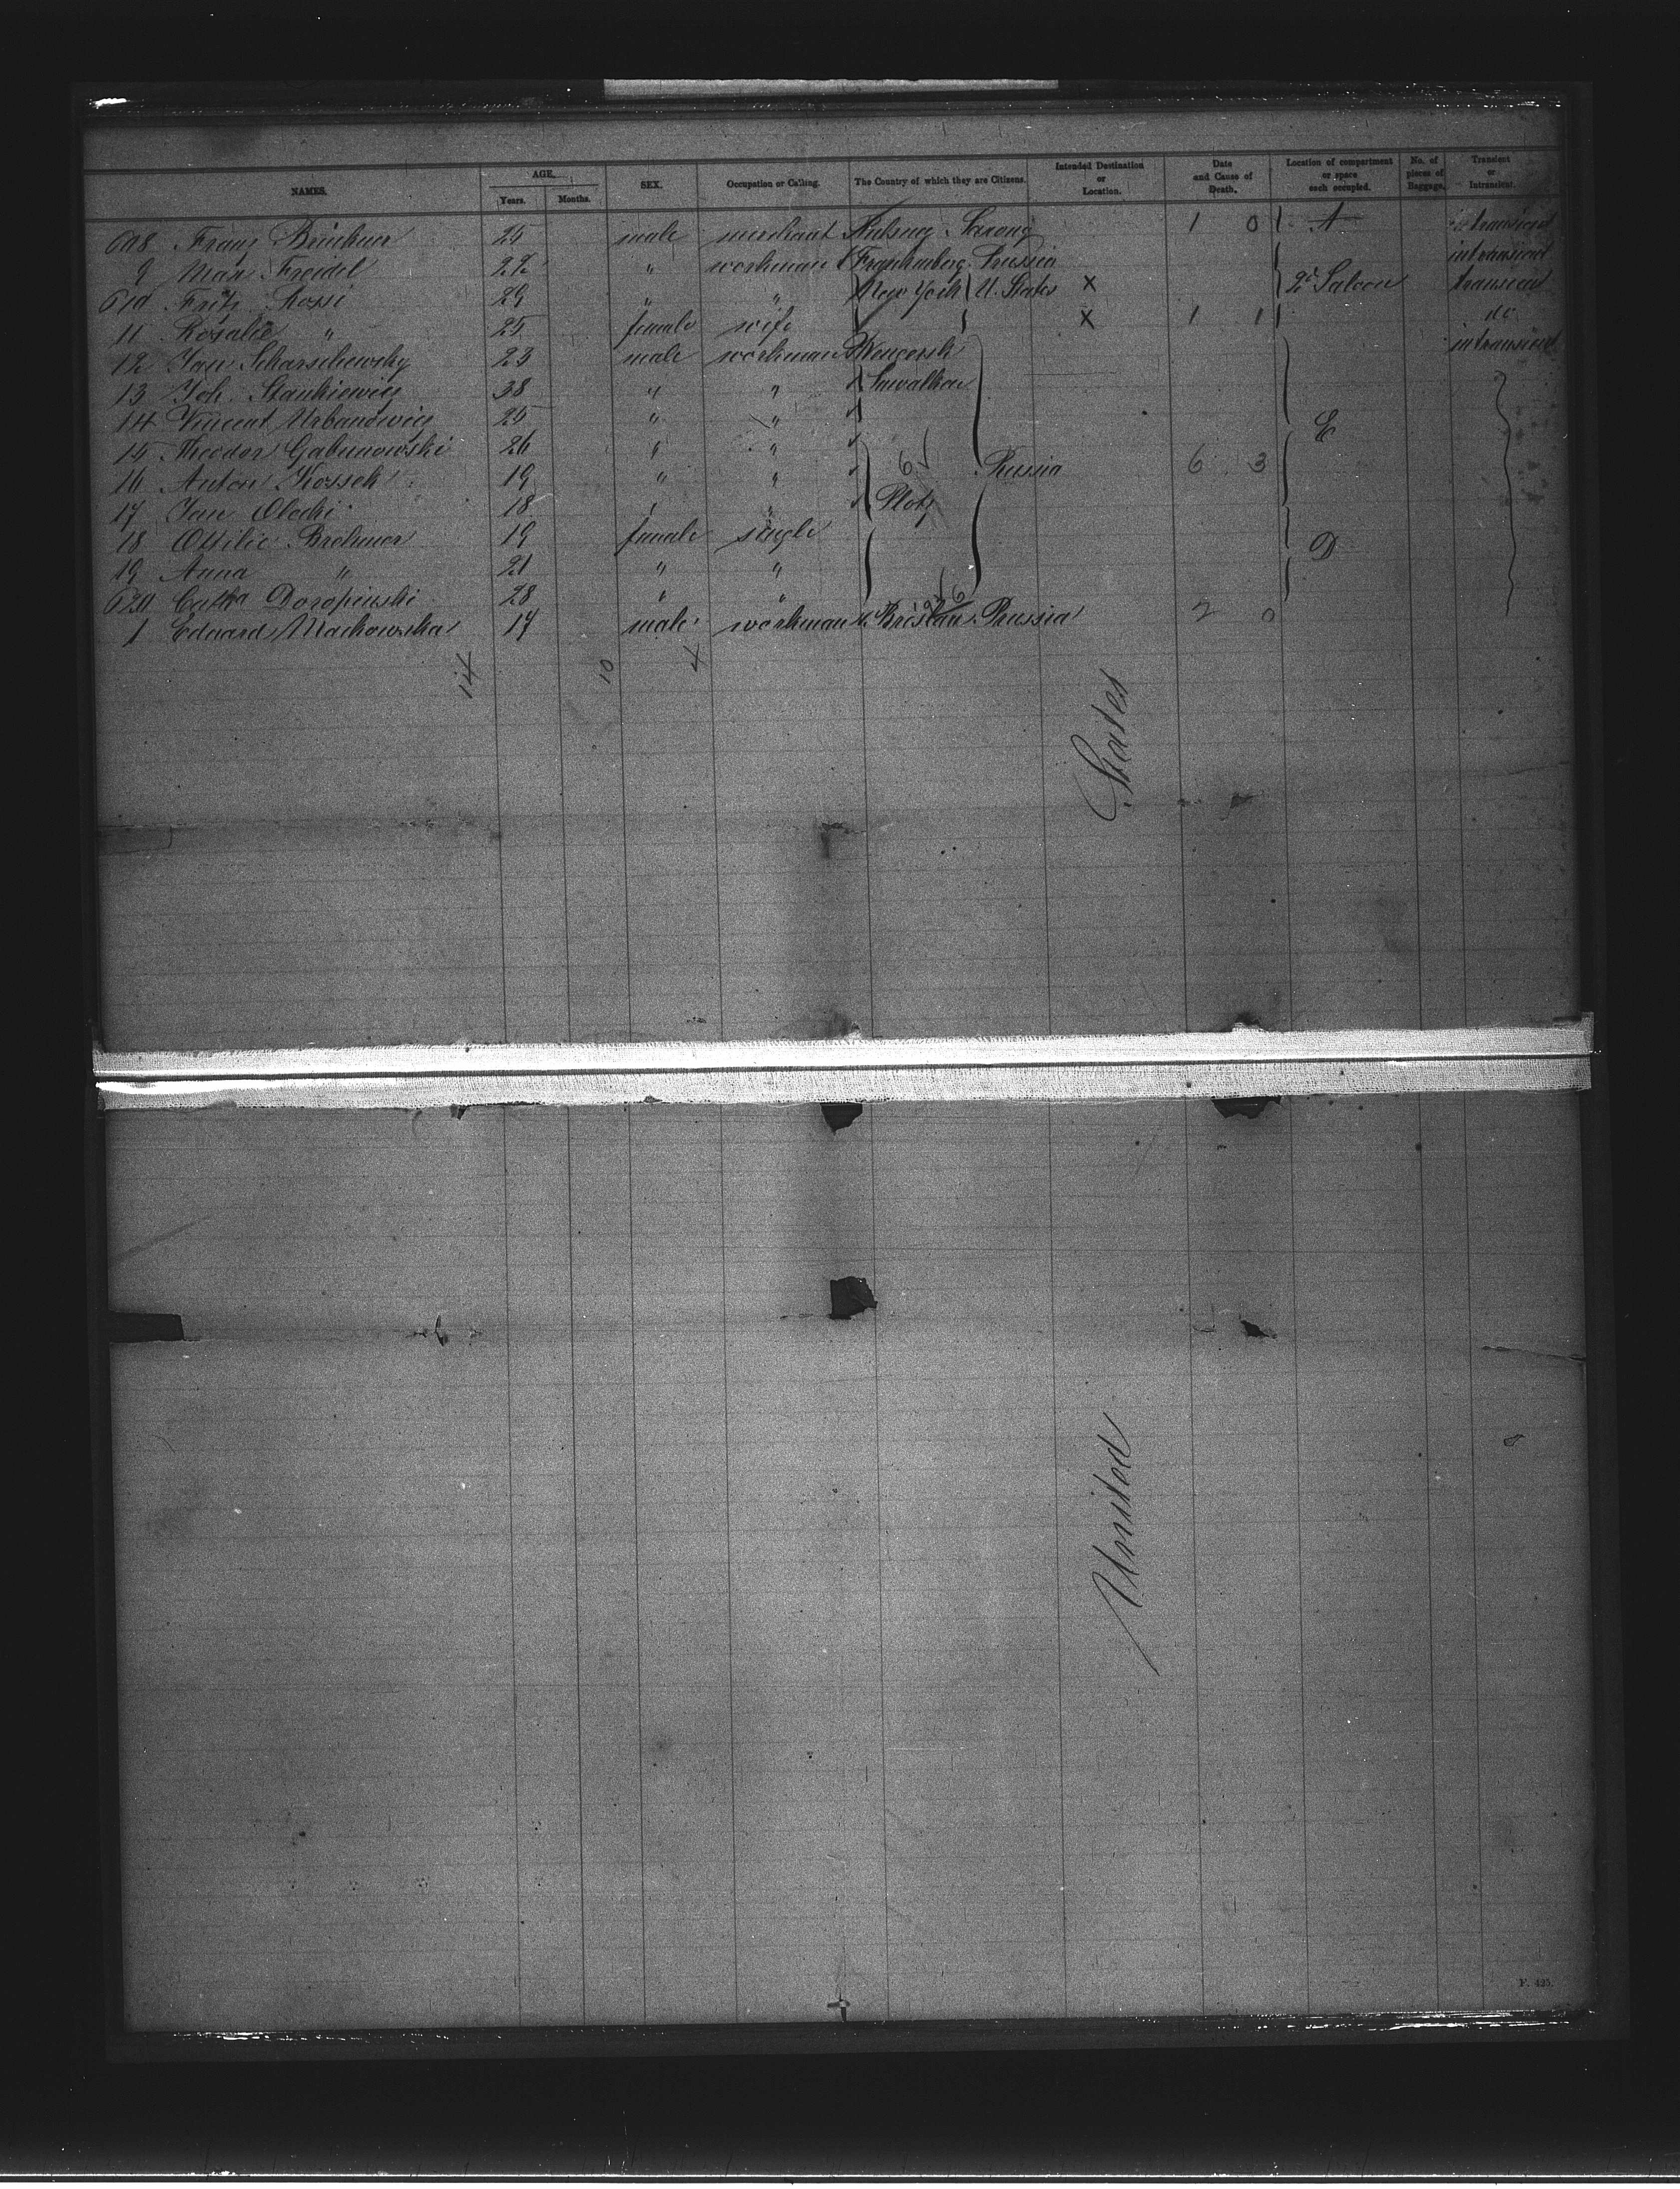 NAMES. AGE. Years. Months. SEX. Occupation or Calling. The Country of which they are Citizens. Intended Destination or Location. Date and Cause of Death. Location of compartment or space each occupied. No. of pieces of Baggage. Transient or Intransient.
608 Franz 25 male merchant 1 0 A intransient
9 Max Freidel 22 " workman Prussia intransient
610 Fritz Rossi 29 " " New York U. States X 2d Saloon transient
11 Rosalie " 25 female wife X 1 1 do
12 Jan Scharschewsky 23 male workman intransient
13 Joh. Stankiewicz 38 " " Suwalken
14 Vincent Urbanowicz 25 " " E
15 Theodor 26 " "
16 Anton Kossek 19 " " 6 Russia 6 3
17 Jan Olecki 18 " " Plotz
18 Ottilie Brehmer 19 female single D
19 Anna " 21 " "
620 28 " " 6
1 Eduard Machowska 17 male workman Breslau Prussia 2 0
14 10 4
States
United
F. 425.